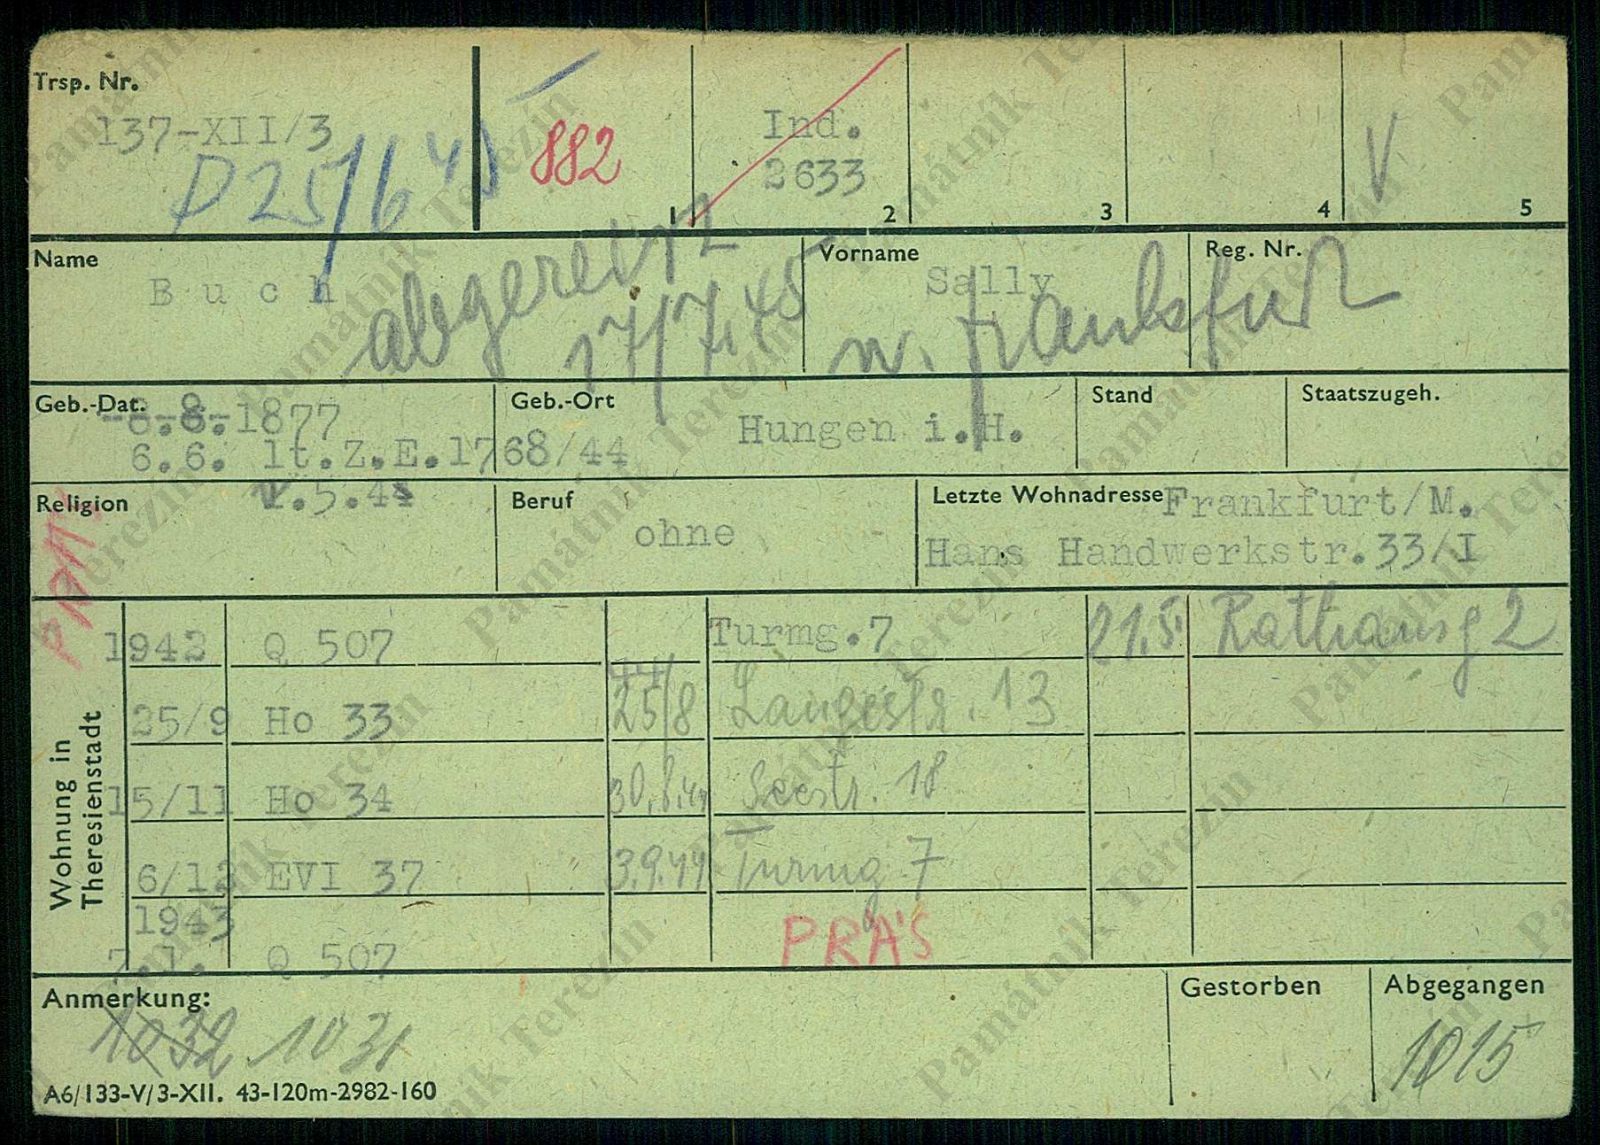 Trsp. Nr.
137-XII/3
D 25/6 45
882
Ind.
2633
V
1
2
3
4
5
Name
Buch
abgereist
17/7.45
n. Frankfurt
Vorname
Sally
Reg. Nr.
Geb.-Dat.
-8.8.-1877
6.6. lt.Z.E.1768/44
v.5.44
Geb.-Ort
Hungen i.H.
Stand
Staatszugeh.
Religion
Beruf
ohne
Letzte Wohnadresse
Frankfurt/M.
Hans Handwerkstr.33/I
Wohnung in
Theresienstadt
1942 Q 507
Turmg.7
21.5. Rathausg 2
25/9 Ho 33
44
25/8 Langestr. 13
15/11 Ho 34
30.8.44 Seestr. 18
6/12 EVI 37
3.9.44 Turmg 7
1943
7.1. Q 507
PRÁS
Anmerkung:
1032 1031
Gestorben
Abgegangen
1015
A6/133-V/3-XII. 43-120m-2982-160
Památník Terezín